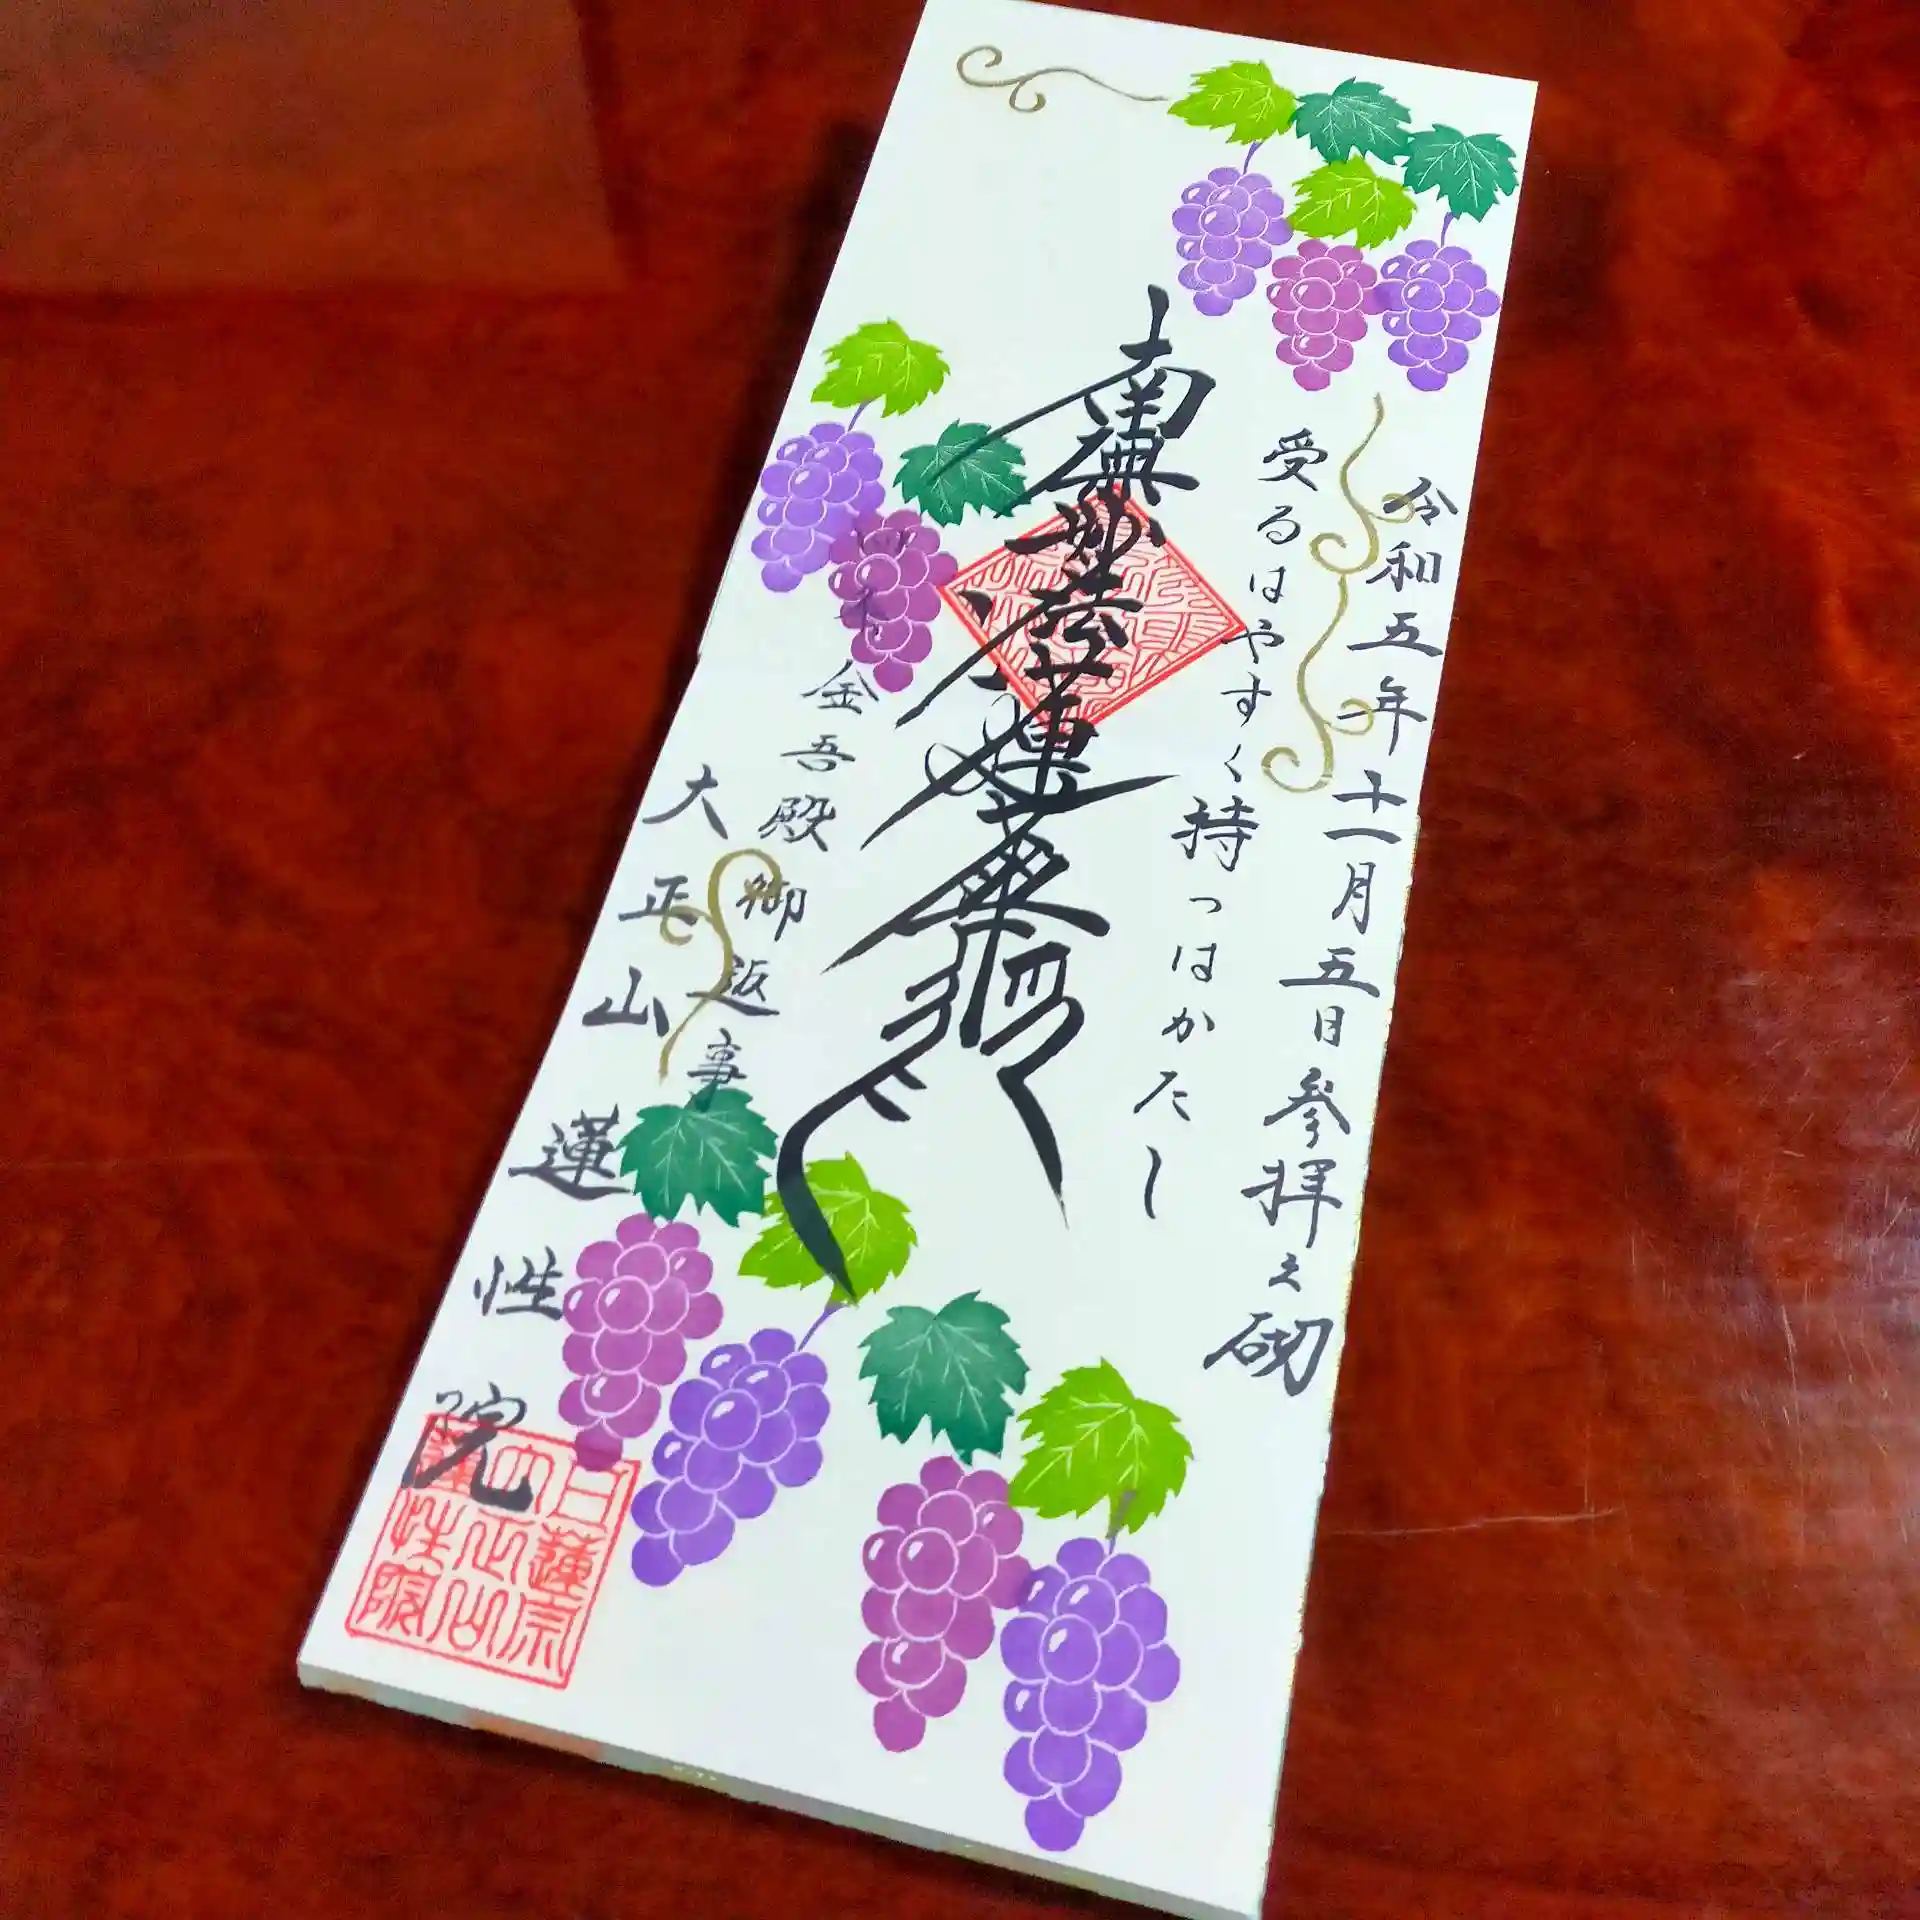 令和五年十一月五日参拝之砌
受るはやすく持つはかたし
南無妙法蓮華経
四条金吾殿御返事
大正山蓮性院
日蓮宗
大正山
蓮性院